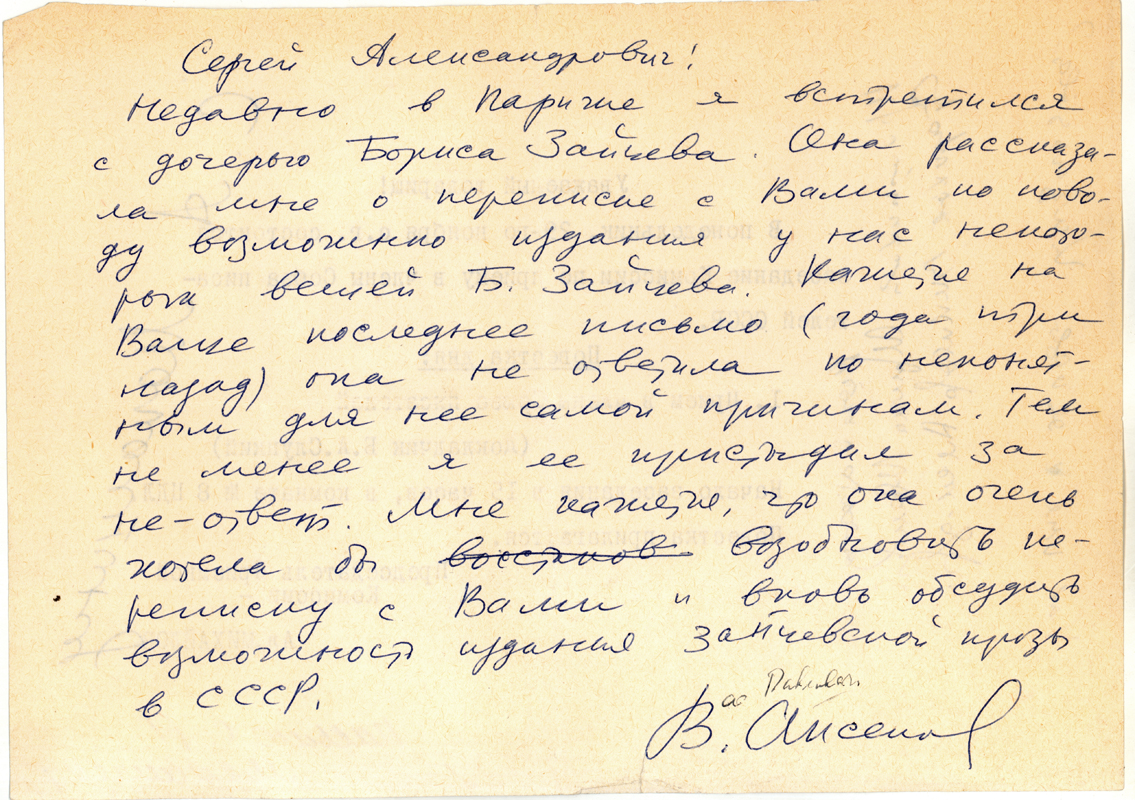 Сергей Александрович!
Недавно в Париже я встретился
с дочерью Бориса Зайцева. Она рассказа-
ла мне о переписке с Вами по пово-
ду возможно издания у нас некото-
рых вещей Б. Зайцева. Кажется на
Ваше последнее письмо (года три
назад) она не ответила по непонят-
ным для нее самой причинам. Тем
не менее я ее пристыдил за
не-ответ. Мне кажется, что она очень
хотела бы восстанов возобновить пе-
реписку с Вами и вновь обсудить
возможность издания зайцевской прозы
в СССР.
В. Аксенов